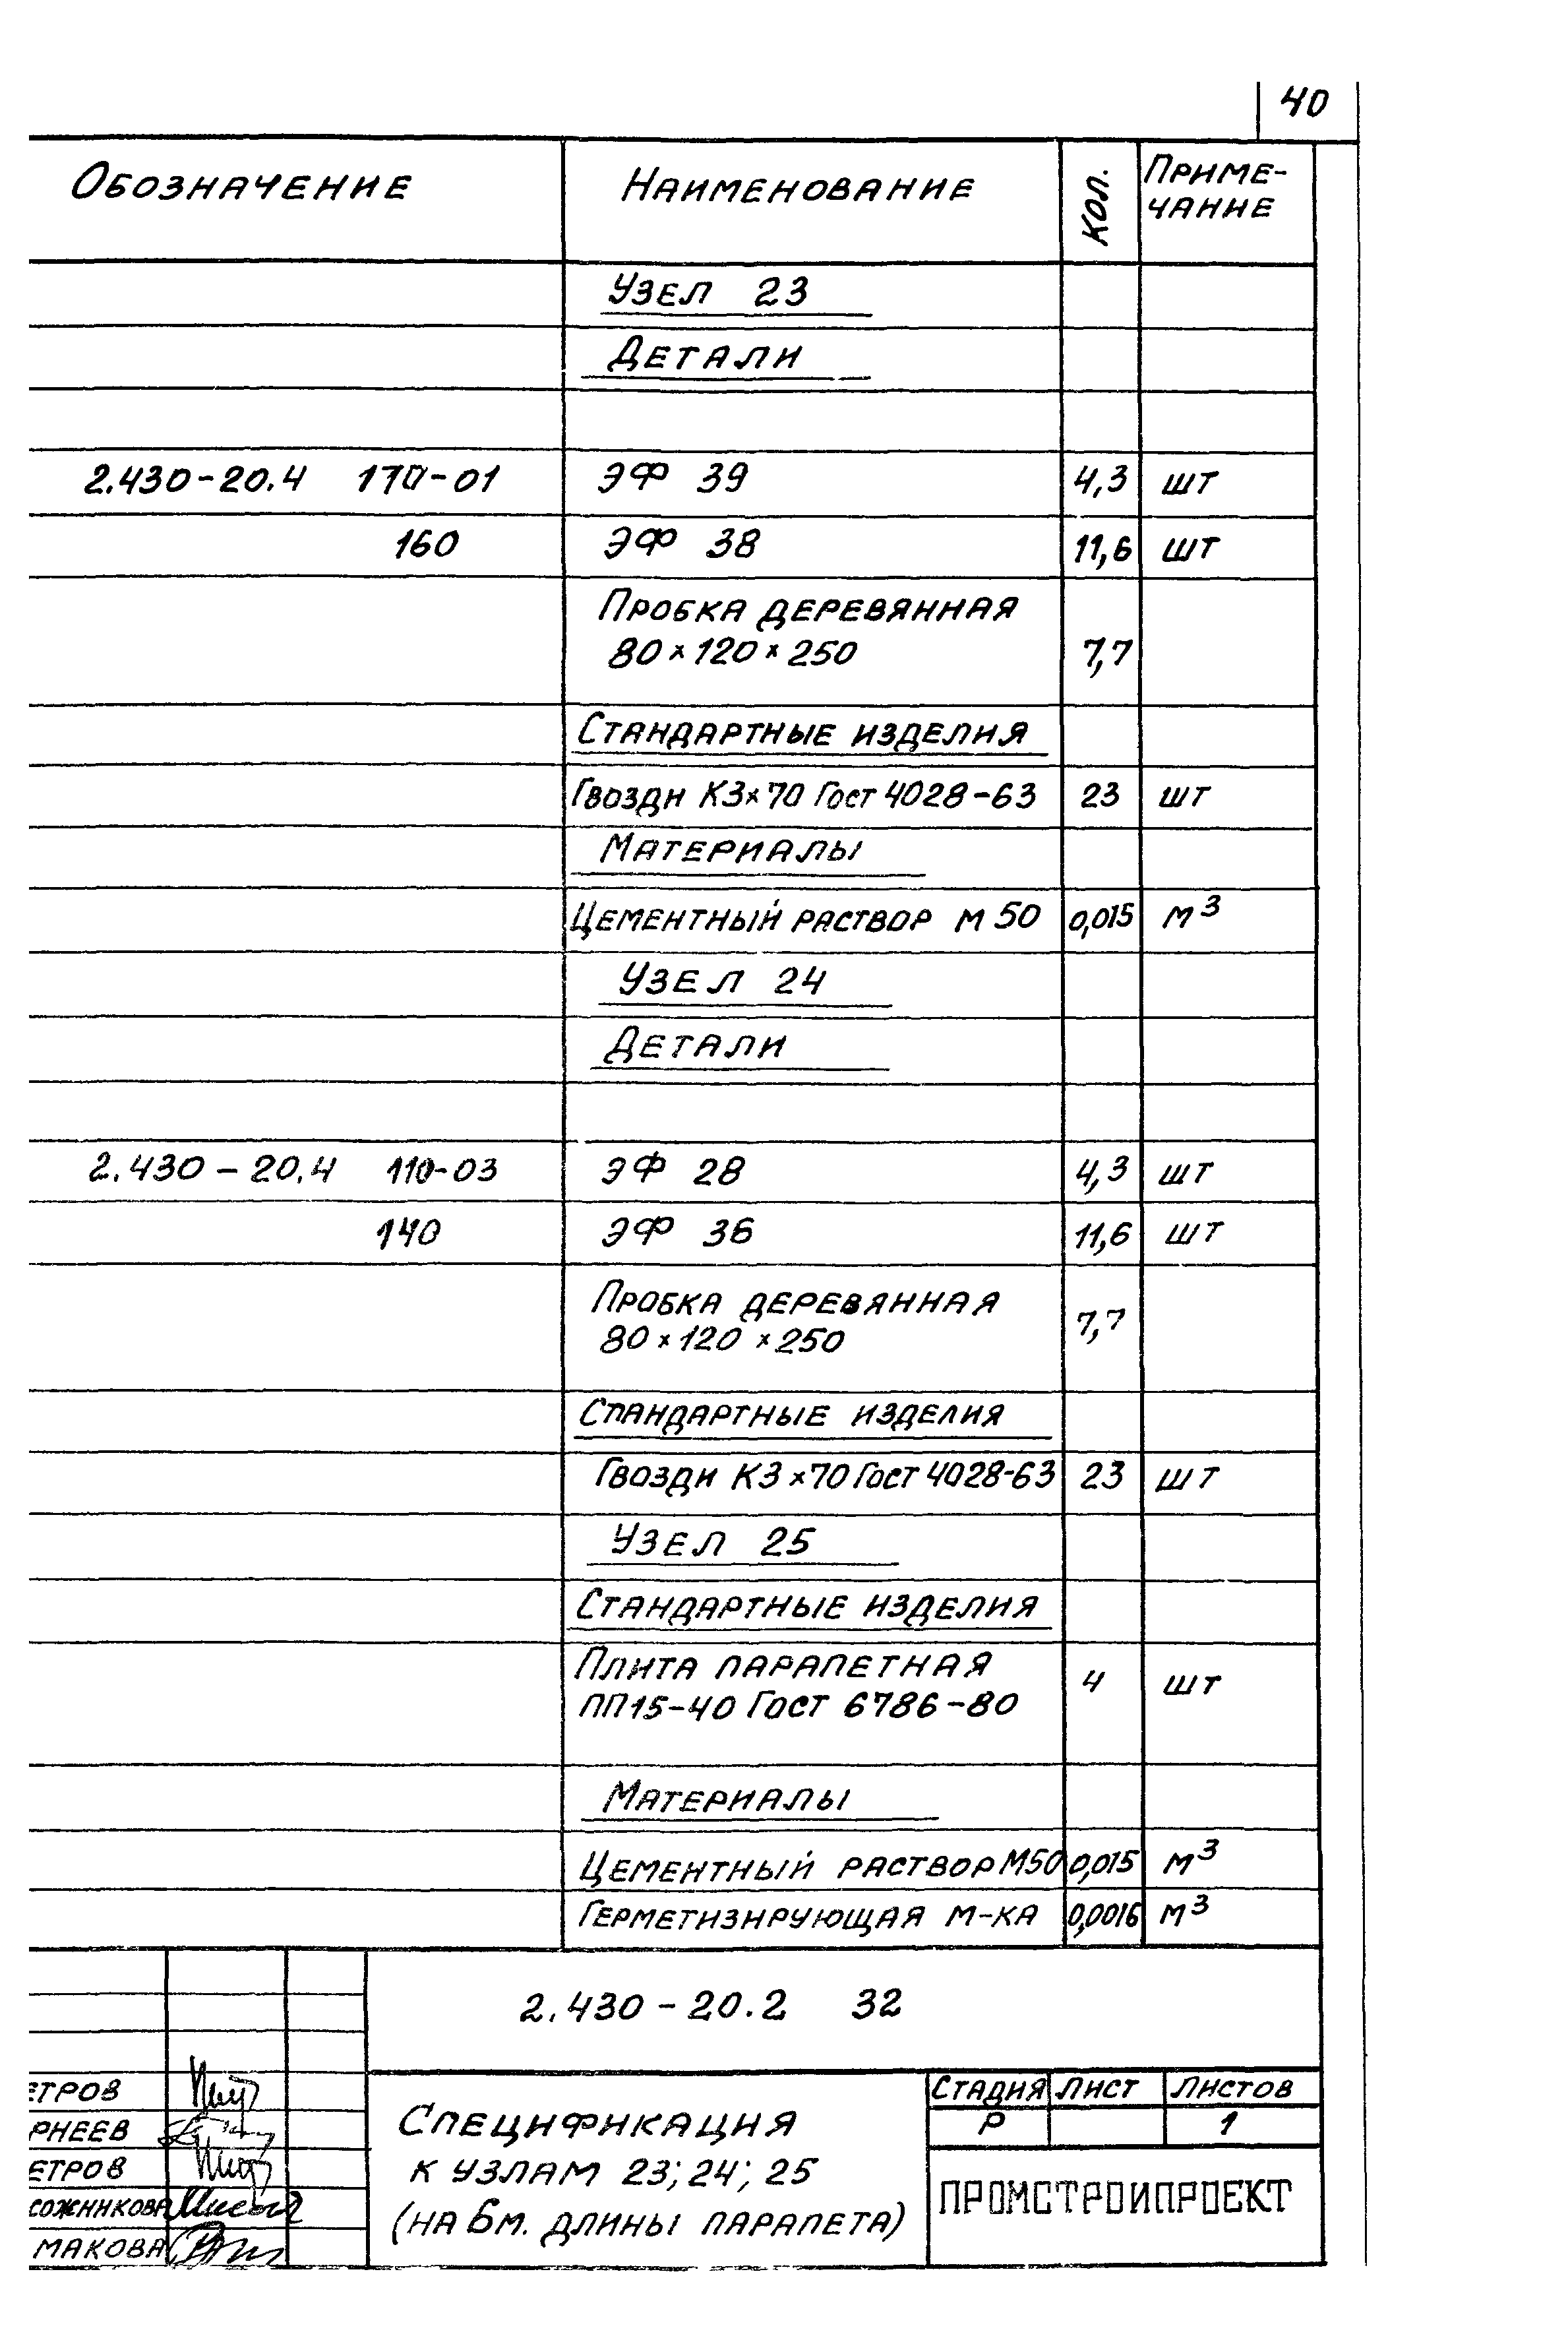 40
Обозначение Наименование Кол. Приме-
чание
Узел 23
Детали
2.430-20.4 170-01 ЭФ 39 4,3 шт
160 ЭФ 38 11,6 шт
Пробка деревянная
80×120×250 7,7
Стандартные изделия
Гвозди К3×70 Гост 4028-63 23 шт
Материалы
Цементный раствор М 50 0,015 м³
Узел 24
Детали
2.430-20.4 110-03 ЭФ 28 4,3 шт
140 ЭФ 36 11,6 шт
Пробка деревянная
80×120×250 7,7
Стандартные изделия
Гвозди К3×70 Гост 4028-63 23 шт
Узел 25
Стандартные изделия
Плита парапетная
ПП15-40 Гост 6786-80 4 шт
Материалы
Цементный раствор М50 0,015 м³
Герметизирующая м-ка 0,0016 м³
2.430-20.2 32
ЕТРОВ
РНЕЕВ
ЕТРОВ
СОЖНИКОВА
МАКОВА
Спецификация
к узлам 23; 24; 25
(на 6м. длины парапета)
Стадия Лист Листов
Р 1
ПРОМСТРОИПРОЕКТ